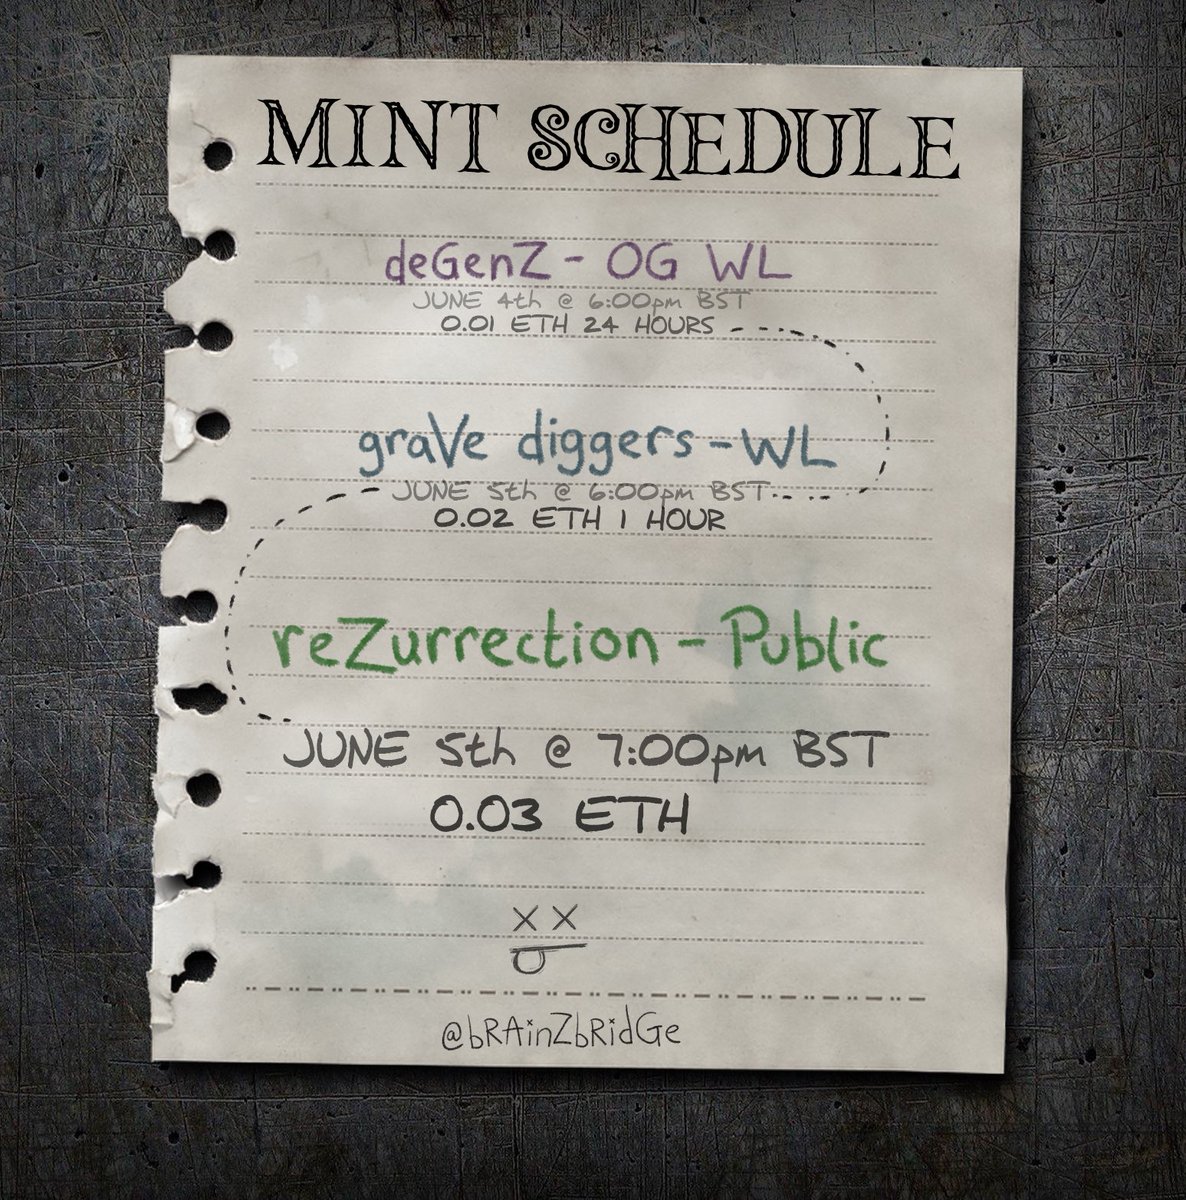 MINT SCHEDULE
deGenZ - OG WL
JUNE 4th @ 6:00pm BST
0.01 ETH 24 HOURS
graVe diggers - WL
JUNE 5th @ 6:00pm BST
0.02 ETH 1 HOUR
reZurrection - Public
JUNE 5th @ 7:00pm BST
0.03 ETH
@bRAinZbRidGe